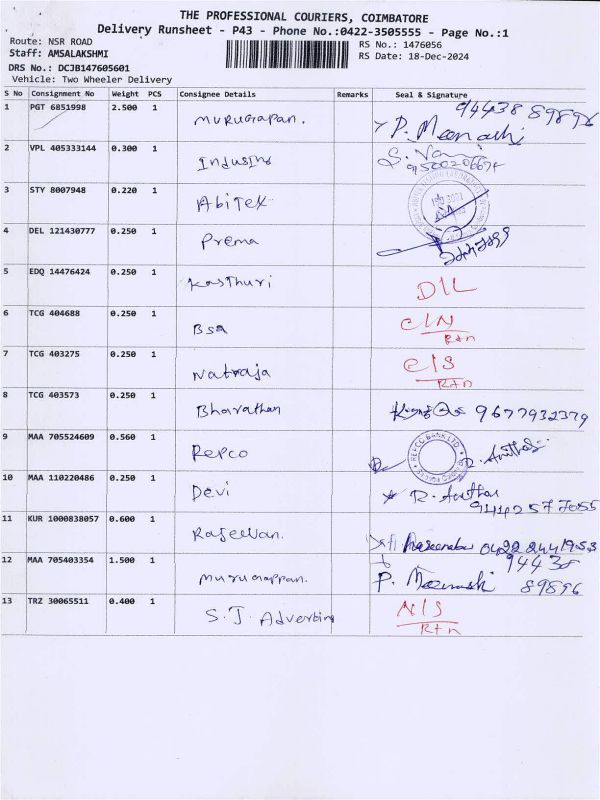 THE PROFESSIONAL COURIERS, COIMBATORE
Delivery Runsheet - P43 - Phone No.:0422-3505555 - Page No.:1
Route: NSR ROAD
RS No.: 1476056
Staff: AMSALAKSHMI
RS Date: 18-Dec-2024
DRS No.: DCJB147605601
Vehicle: Two Wheeler Delivery
S No Consignment No Weight PCS Consignee Details Remarks Seal & Signature
94438 89896
1 PGT 6851998 2.500 1 Murugapan. P. Meenachi
2 VPL 405333144 0.300 1 Indusind
3 STY 8007948 0.220 1 Abitex
4 DEL 121430777 0.250 1 Prema
5 EDQ 14476424 0.250 1 Kasthuri D/L
6 TCG 404688 0.250 1 Bsa C/N
Rtn
7 TCG 403275 0.250 1 Natraja C/S
Rtn
8 TCG 403573 0.250 1 Bharathan 9677932379
9 MAA 705524609 0.560 1 Repco REPCO BANK LTD.
10 MAA 110220486 0.250 1 Devi R. Anitha
11 KUR 1000838057 0.600 1 Rajeevan. 0422 2441953
94438
12 MAA 705403354 1.500 1 Murugappan. P. Meenakshi 89896
13 TRZ 30065511 0.400 1 S.J. Adverting N/S
Rtn